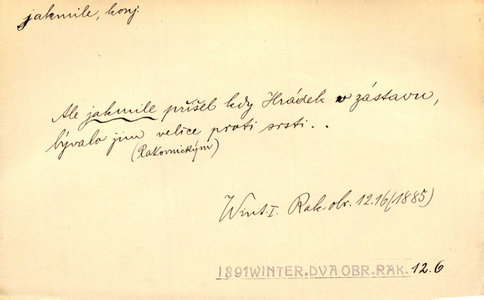 jakmile, konj.
Ale jakmile přišel kdy Hrádek v zástavu,
bývalo jim velice proti srsti..
(Rakovnickým)
Wint. I. Rak. obr. 12.16 (1885)
1891WINTER.DVA OBR.RAK. 12.6